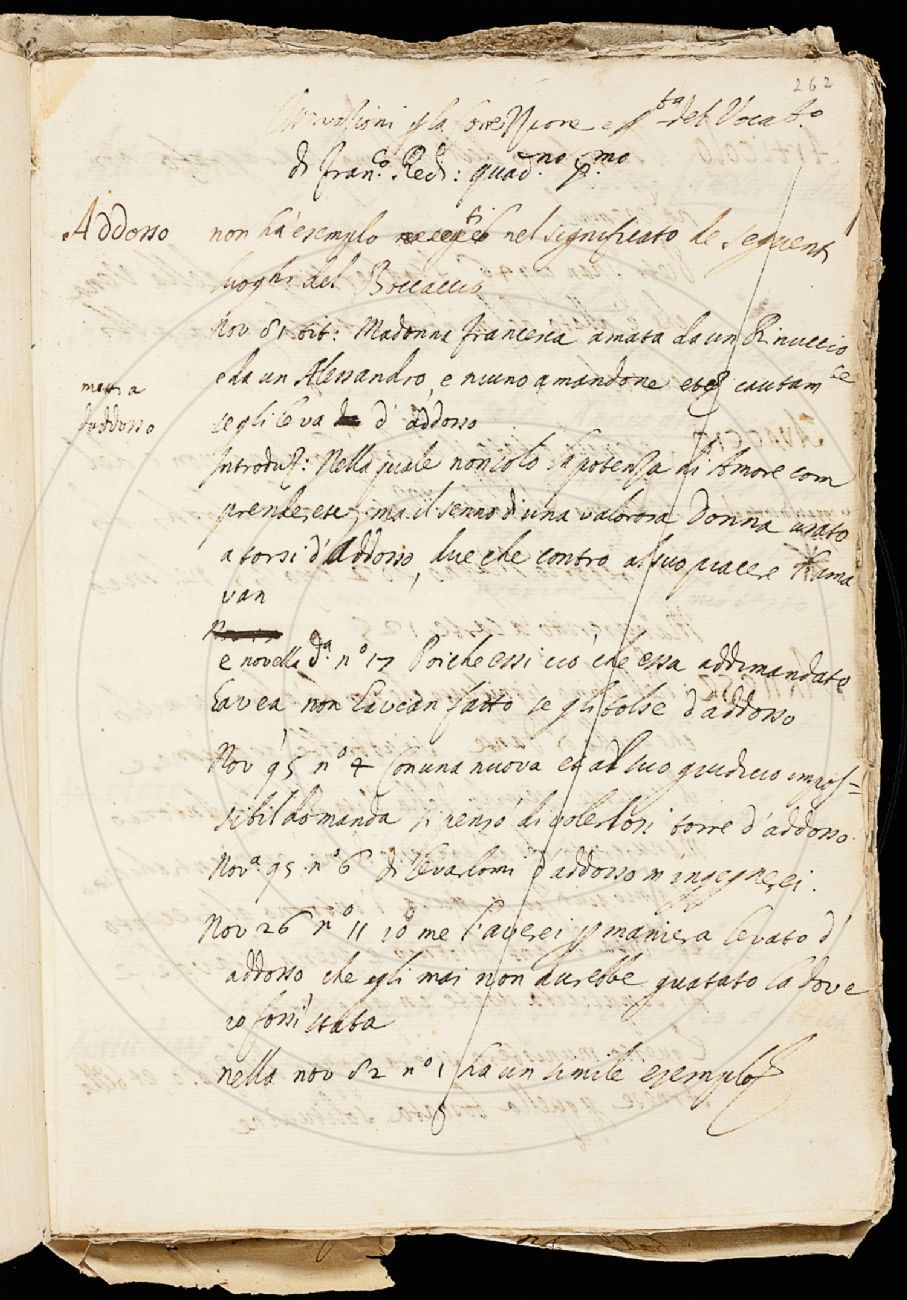 262
Osservazioni p la correzzione e ta del Vocabo.
di Franco. Redi: quadno. pmo.
Addosso non há esempio nel significato de seguenti
luoghi del Boccaccio
Nov 81 tit: Madonna francesca amata da un Rinuccio
e da un Alessandro, e niuno amandone cautamce
se gli leva d' addosso
d'addosso
Introduz: Nella quale non solo la potenza di Amore com
prenderete, ma il senno di una valorosa donna usato
a torsi d'addosso, due che contro al suo piacere l'ama
van
e novella da. no 17 Poiche essi ció che essa addimandato
Lavea non Lavean fatto se gli tolse d'addosso
Nov 95 no 4 Con una nuova et al suo giudicio impos=
sibil domanda si pensó di volerlosi torre d'addosso.
Nova 95 no 6 di levarlomi d'addosso m'ingegnerei.
Nov 26 no 11 io me l'averei p maniera levato d'
addosso che egli mai non aurebbe guatato la dove
io fossi stata
nella nov 82 no 1 ha un simile esempio